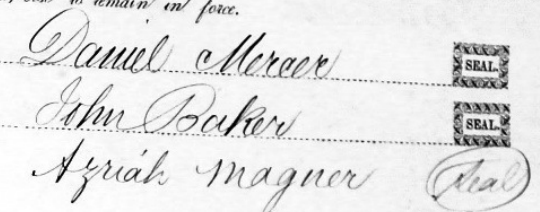 to remain in force.
Daniel Mercer SEAL.
John Baker SEAL.
Azriah Magner Seal